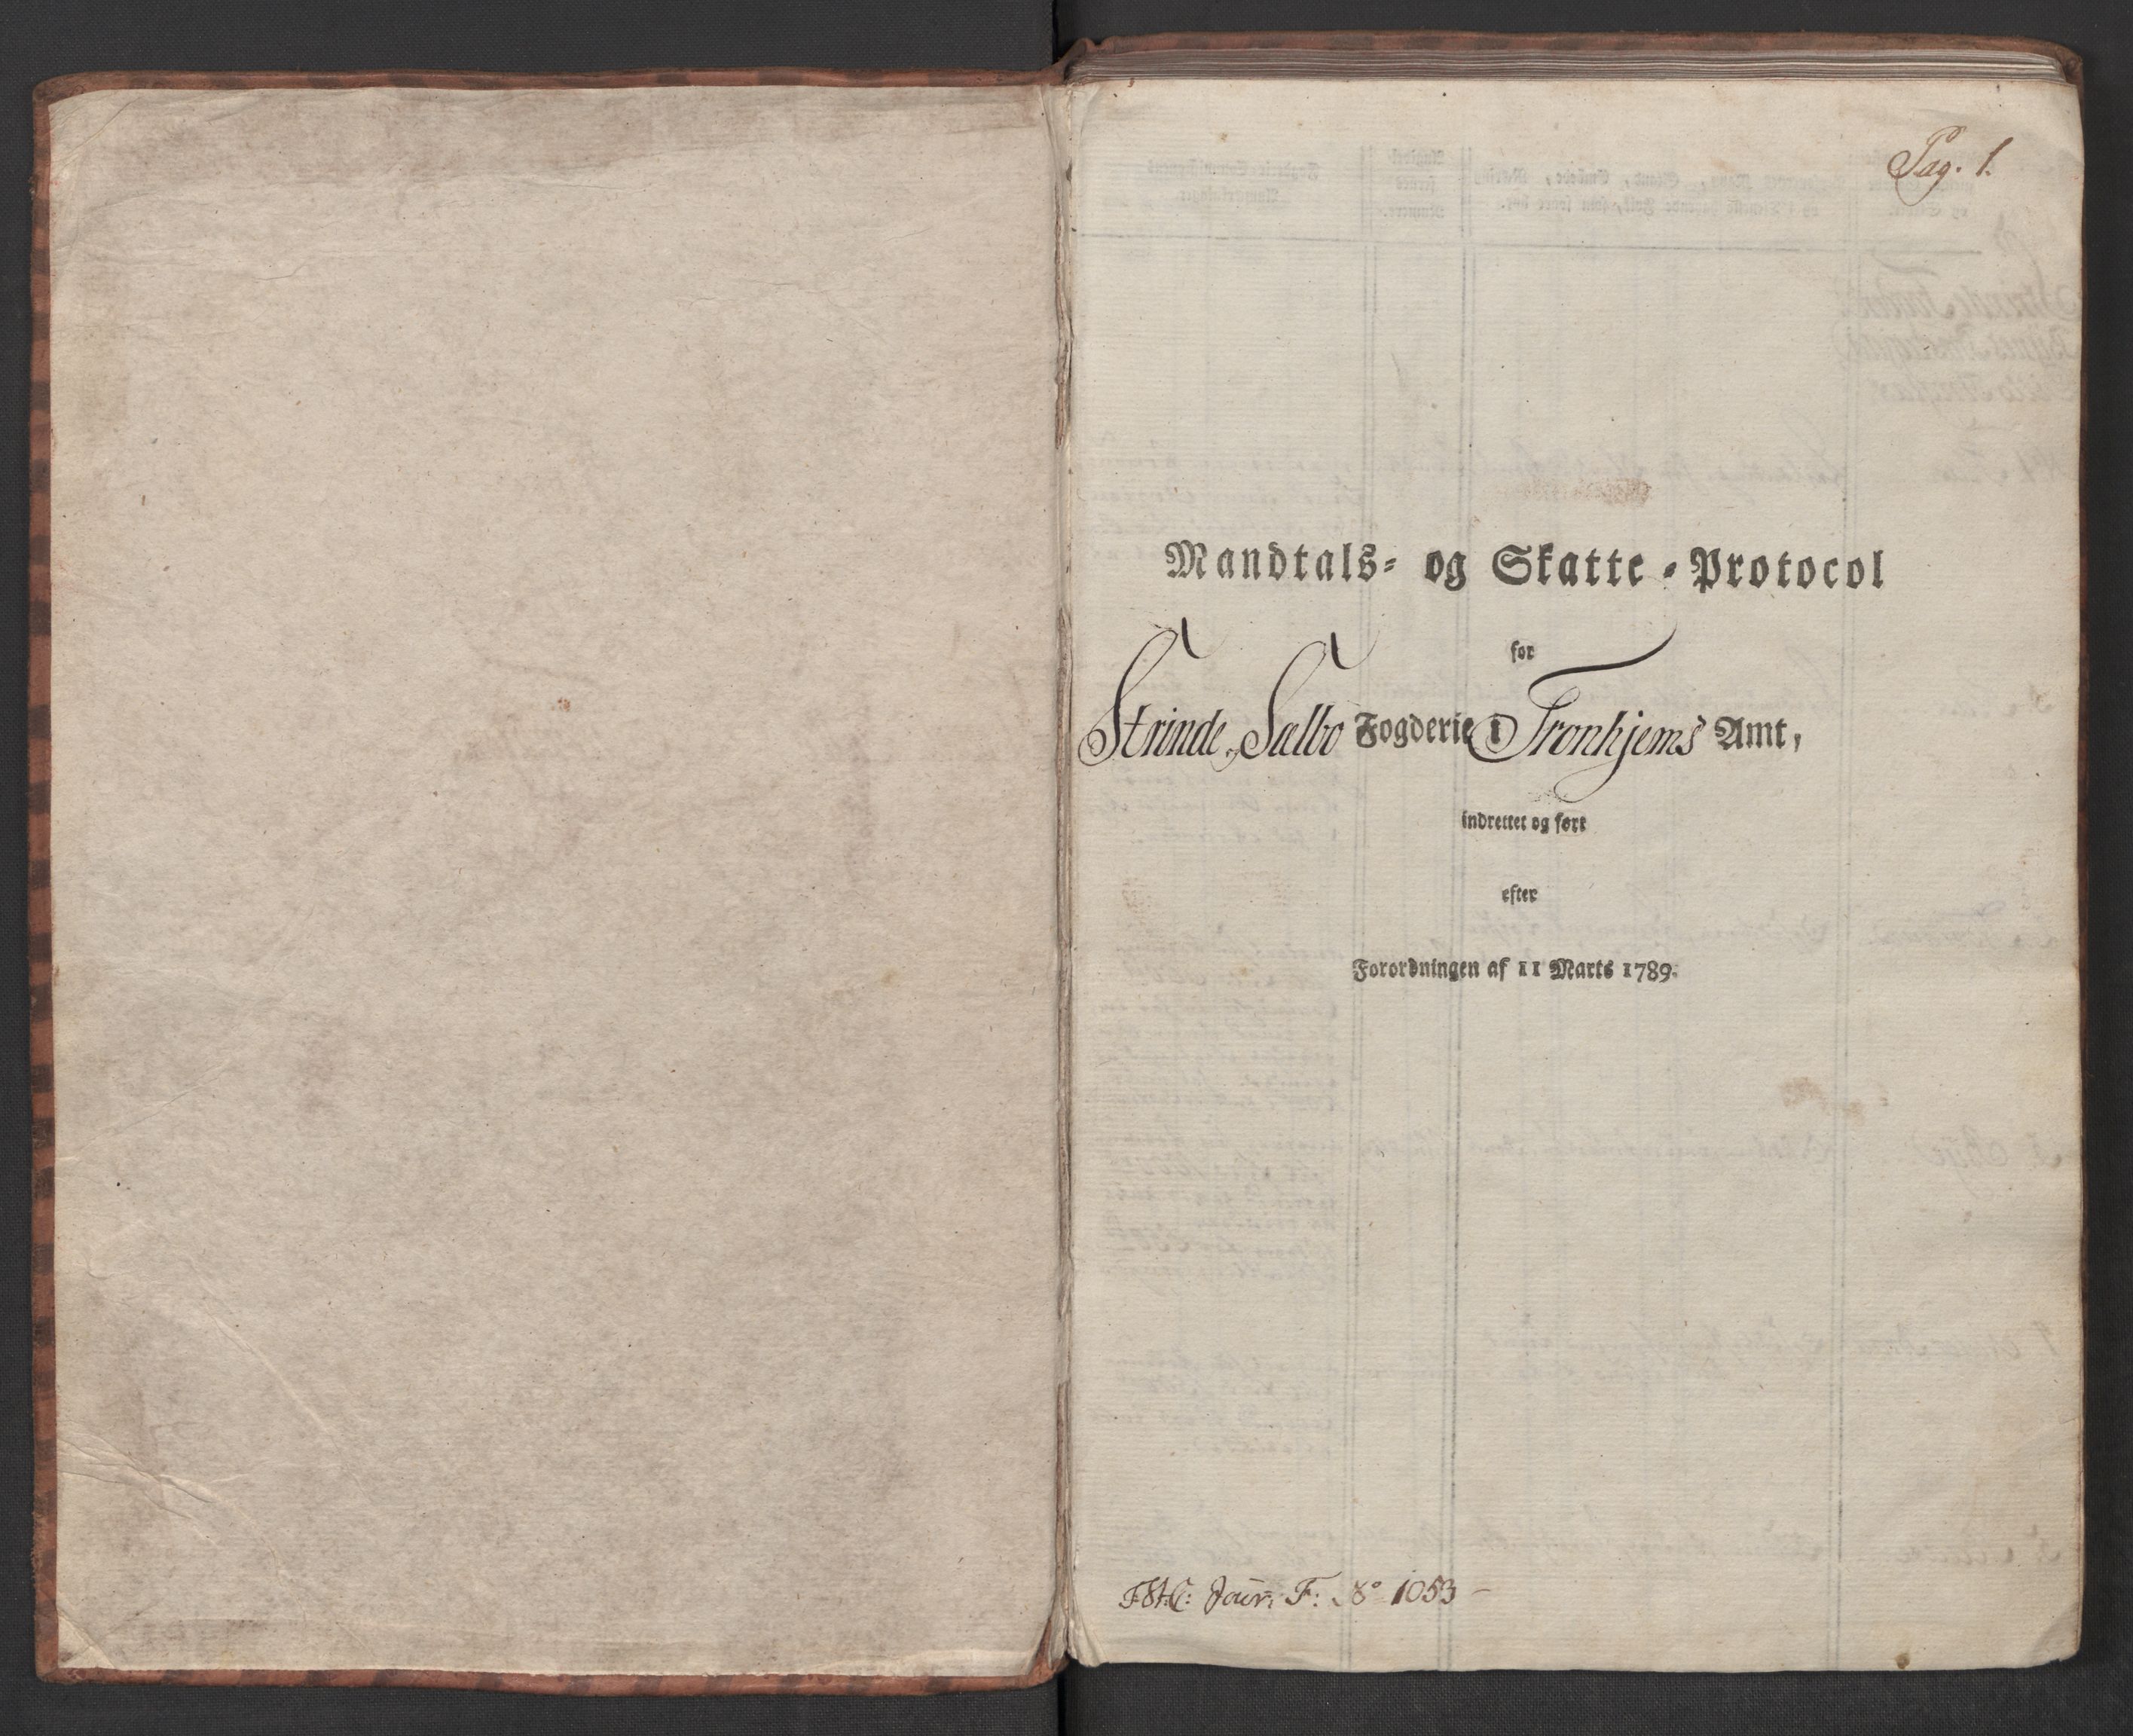 Pag. 1.
Mandtals- og Skatte-Protocol
for
Strinde og Sælbo Fogderie i Tronhjems Amt,
indrettet og ført
efter
Forordningen af 11 Marts 1789.
F.St.C: Jour: F: No 1053 -